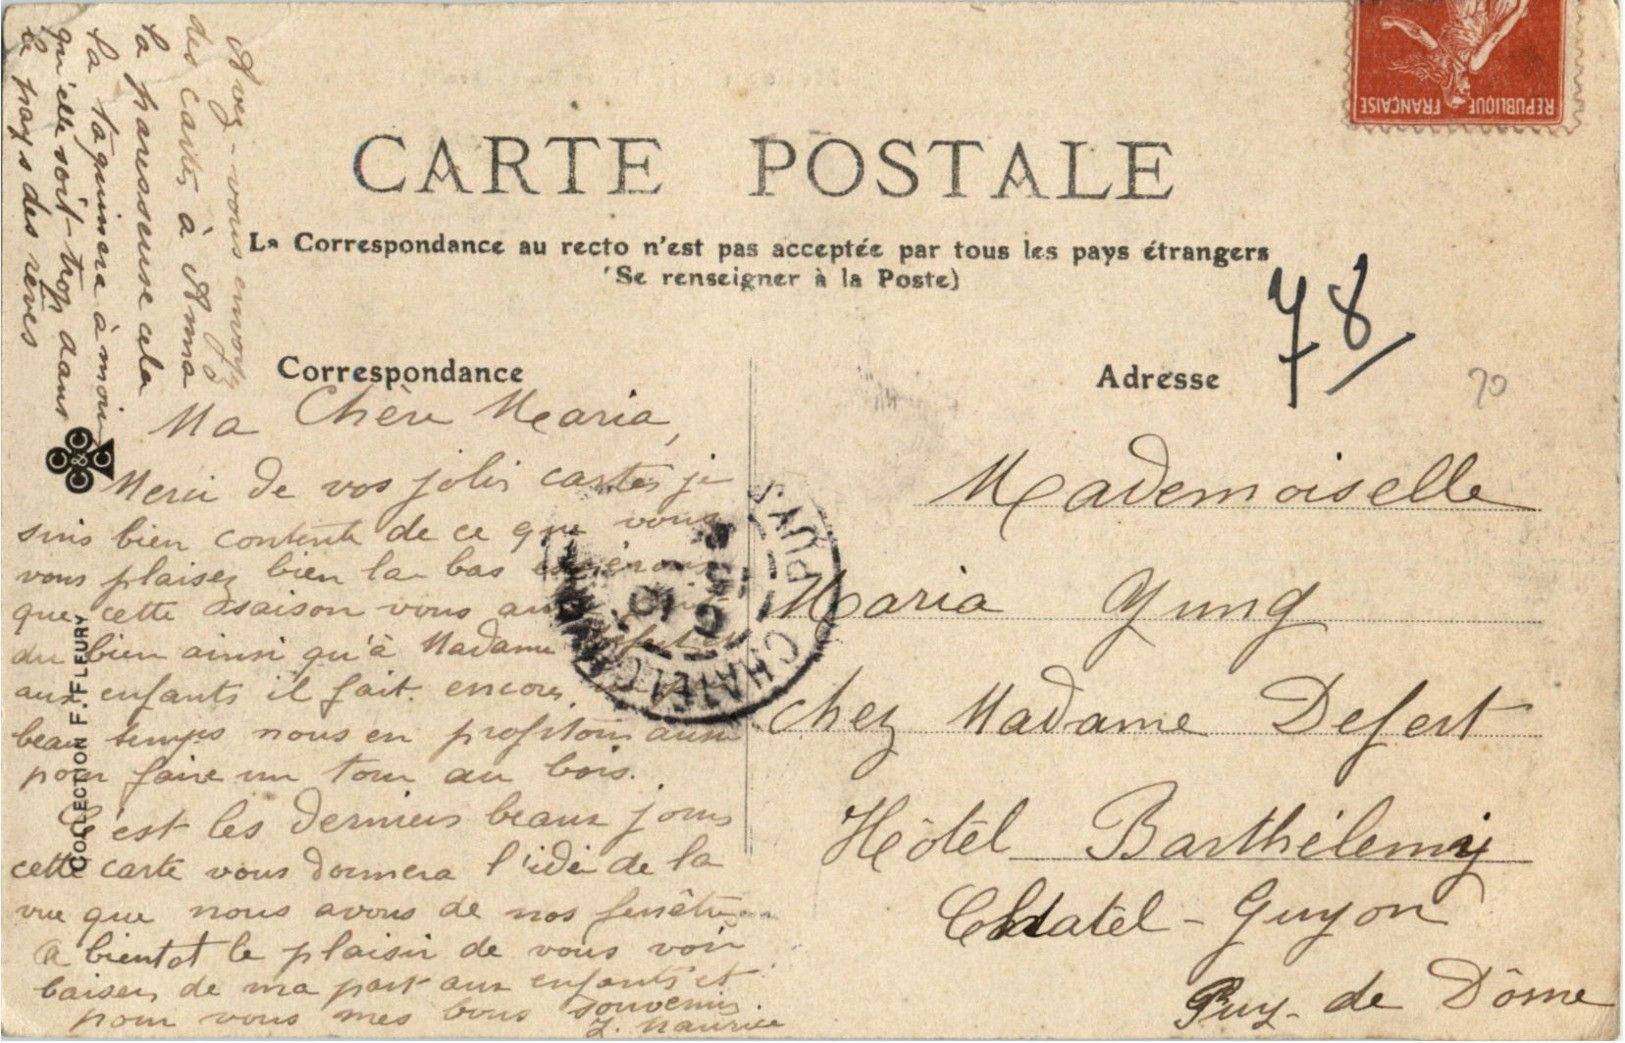 REPUBLIQUE FRANÇAISE
CARTE POSTALE
La Correspondance au recto n'est pas acceptée par tous les pays étrangers
(Se renseigner à la Poste)
Correspondance
Adresse
78
20
Avez-vous envoyé
des cartes à Anna
la paresseuse cela
la taquinera à moins
qu'elle soit trop dans
le pays des rêves
Ma Chère Maria,
Merci de vos jolis cartes je
suis bien contente de ce que vous
vous plaisez bien la bas espérons
que cette saison vous aura
du bien ainsi qu'à Madame Defert et
aux enfants il fait encore
beau temps nous en profitons aussi
pour faire un tour au bois.
C'est les derniers beaux jours
cette carte vous donnera l'idée de la
vue que nous avons de nos fenêtres
A bientot le plaisir de vous voir
baisers de ma part aux enfants et
pour vous mes bons souvenirs.
J. Maurice
Mademoiselle
Maria Yung
chez Madame Defert
Hôtel Barthélemy
Chatel-Guyon
Puy-de Dôme
CHATELGUYON
PUY
COLLECTION F. FLEURY
C C & C C